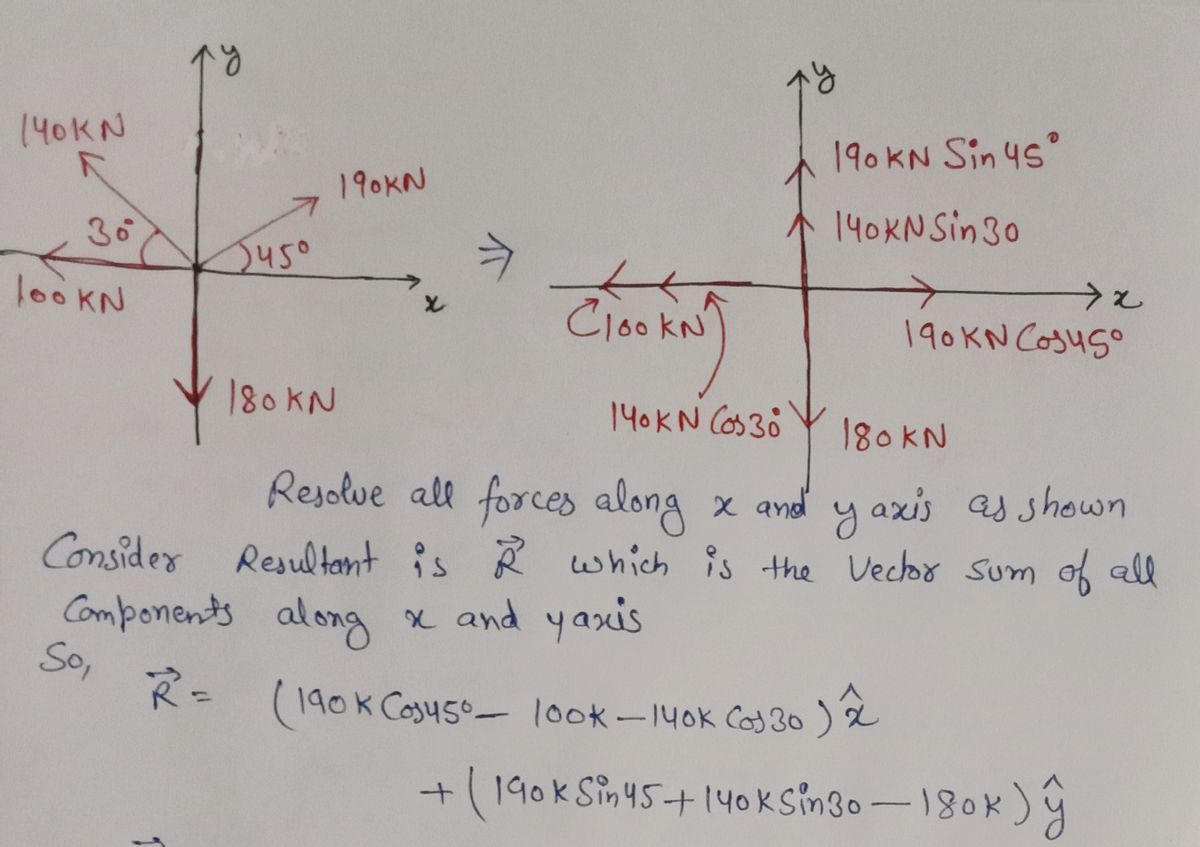 y
140KN
190KN
30°
45°
100KN
x
180KN
⇒
y
190KN Sin45°
140KNSin30
x
100KN
190KN Cos45°
140KN Cos30°
180KN
Resolve all forces along x and y axis as shown
Consider Resultant is R⃗ which is the Vector sum of all
Components along x and y axis
So,
R⃗ = (190K Cos45° — 100K — 140K Cos30) x̂
+ (190K Sin45 + 140K Sin30 — 180K) ŷ